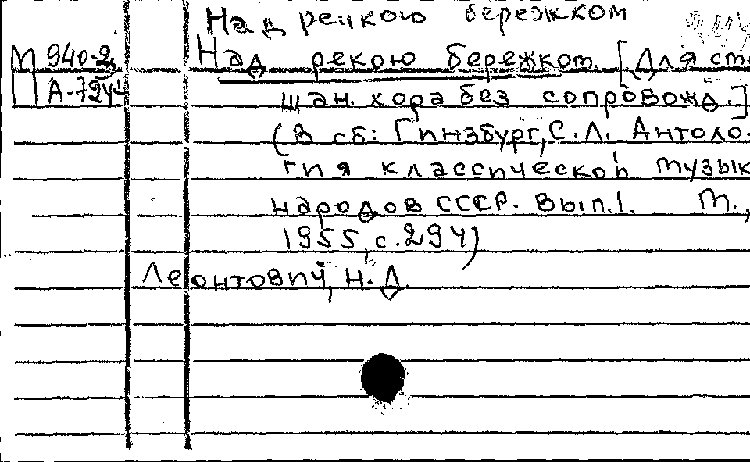 Над речкою бережком
М 940-2
П А-724
Над рекою бережком. [Для см
шан. хора без сопровожд.]
(В сб: Гинзбург, С.Л. Антоло-
гия классической музык
народов СССР. Вып.1. М.,
1955, с.294)
Леонтович, Н.Д.